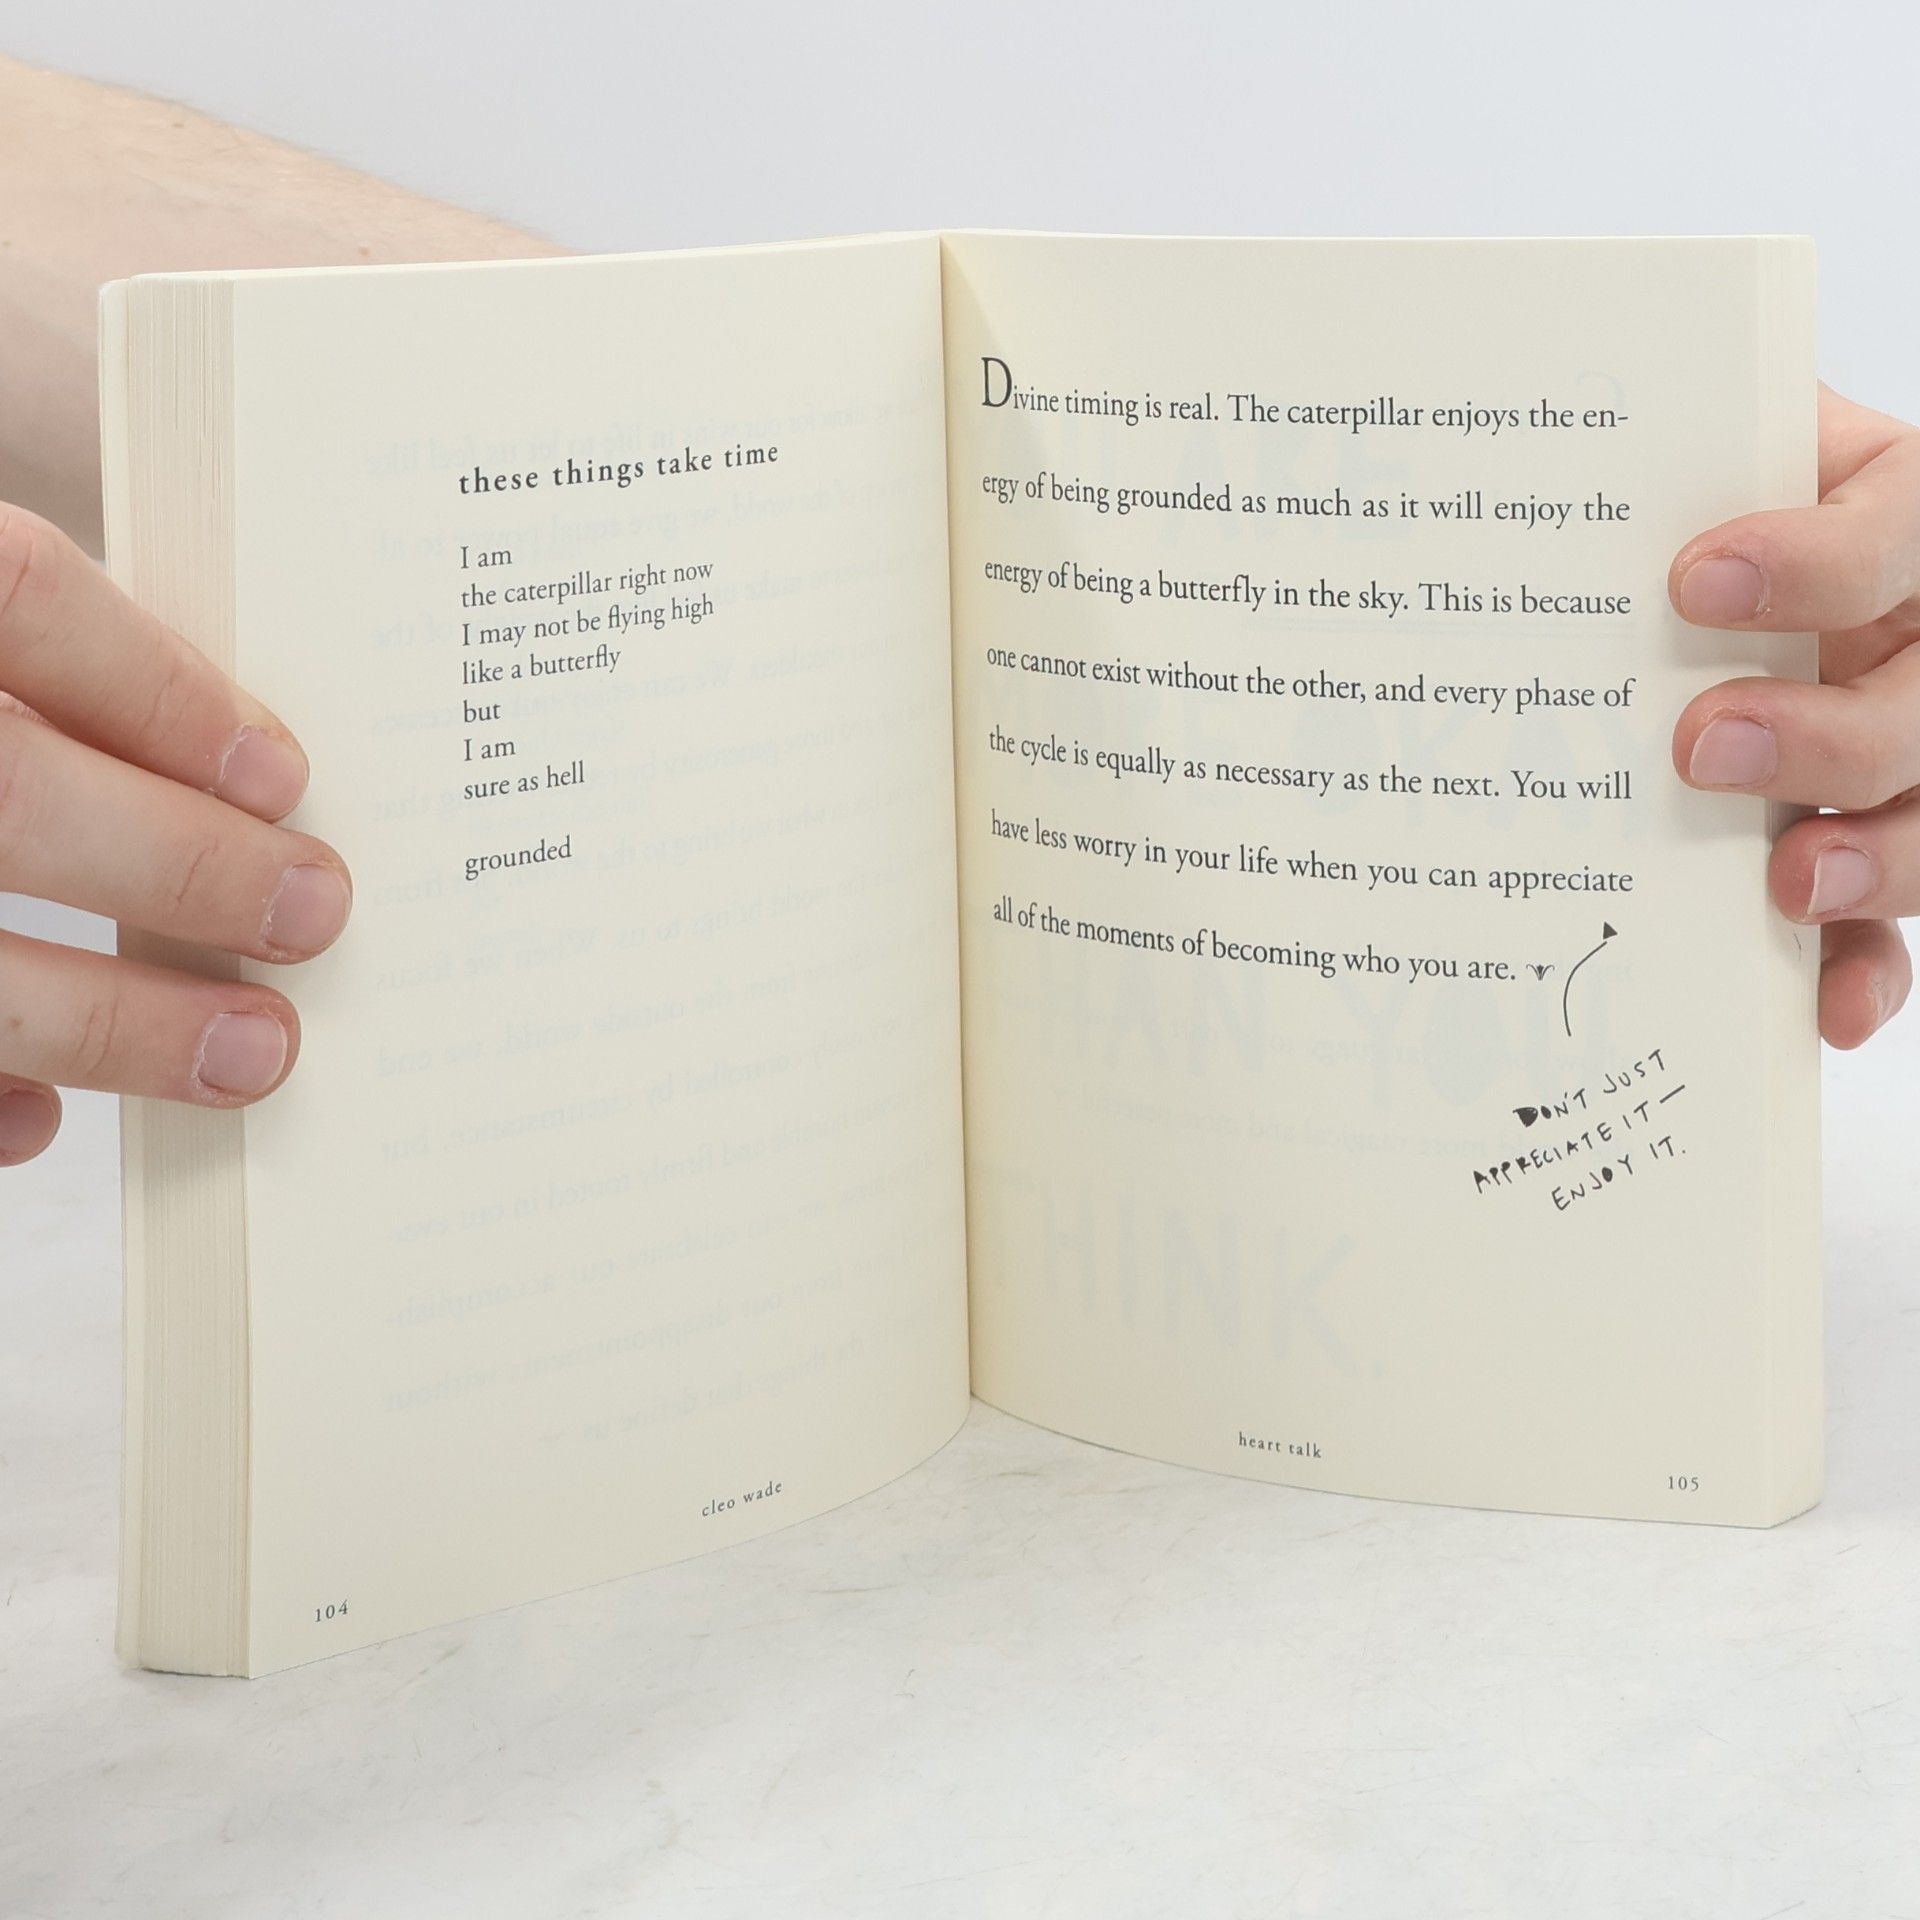 these things take time
I am
the caterpillar right now
I may not be flying high
like a butterfly
but
I am
sure as hell
grounded
cleo wade
104
Divine timing is real. The caterpillar enjoys the en-
ergy of being grounded as much as it will enjoy the
energy of being a butterfly in the sky. This is because
one cannot exist without the other, and every phase of
the cycle is equally as necessary as the next. You will
have less worry in your life when you can appreciate
all of the moments of becoming who you are.
DON'T JUST
APPRECIATE IT —
ENJOY IT.
heart talk
105